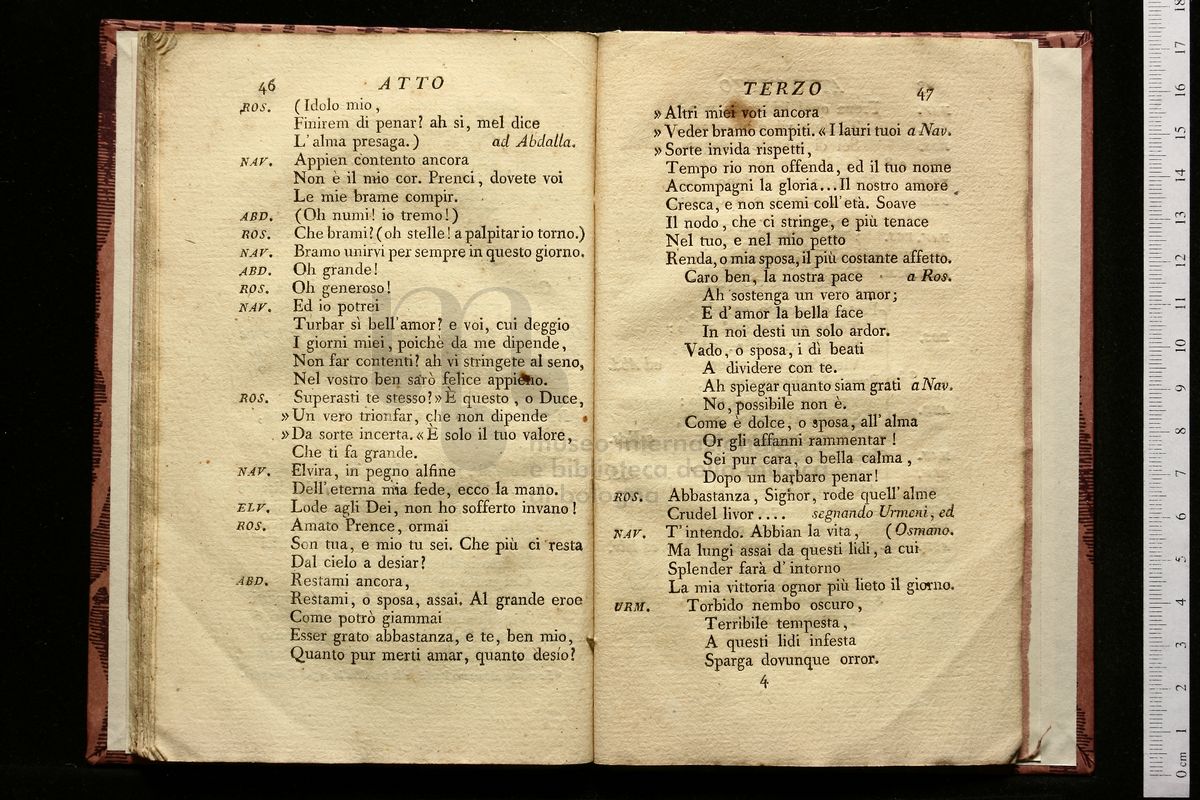 46 ATTO
ROS. (Idolo mio,
Finirem di penar? ah sì, mel dice
L'alma presaga.) ad Abdalla.
NAV. Appien contento ancora
Non è il mio cor. Prenci, dovete voi
Le mie brame compir.
ABD. (Oh numi! io tremo!)
ROS. Che brami? (oh stelle! a palpitar io torno.)
NAV. Bramo unirvi per sempre in questo giorno.
ABD. Oh grande!
ROS. Oh generoso!
NAV. Ed io potrei
Turbar sì bell'amor? e voi, cui deggio
I giorni miei, poichè da me dipende,
Non far contenti? ah vi stringete al seno,
Nel vostro ben sarò felice appieno.
ROS. Superasti te stesso? » È questo, o Duce,
» Un vero trionfar, che non dipende
» Da sorte incerta. « È solo il tuo valore,
Che ti fa grande.
NAV. Elvira, in pegno alfine
Dell'eterna mia fede, ecco la mano.
ELV. Lode agli Dei, non ho sofferto invano!
ROS. Amato Prence, ormai
Son tua, e mio tu sei. Che più ci resta
Dal cielo a desiar?
ABD. Restami ancora,
Restami, o sposa, assai. Al grande eroe
Come potrò giammai
Esser grato abbastanza, e te, ben mio,
Quanto pur merti amar, quanto desio?
TERZO 47
» Altri miei voti ancora
» Veder bramo compiti. « I lauri tuoi a Nav.
» Sorte invida rispetti,
Tempo rio non offenda, ed il tuo nome
Accompagni la gloria... Il nostro amore
Cresca, e non scemi coll'età. Soave
Il nodo, che ci stringe, e più tenace
Nel tuo, e nel mio petto
Renda, o mia sposa, il più costante affetto.
Caro ben, la nostra pace a Ros.
Ah sostenga un vero amor;
E d'amor la bella face
In noi desti un solo ardor.
Vado, o sposa, i dì beati
A dividere con te.
Ah spiegar quanto siam grati a Nav.
No, possibile non è.
Come è dolce, o sposa, all'alma
Or gli affanni rammentar!
Sei pur cara, o bella calma,
Dopo un barbaro penar!
ROS. Abbastanza, Signor, rode quell'alme
Crudel livor.... segnando Urmeni, ed
NAV. T'intendo. Abbian la vita, (Osmano.
Ma lungi assai da questi lidi, a cui
Splender farà d'intorno
La mia vittoria ognor più lieto il giorno.
URM. Torbido nembo oscuro,
Terribile tempesta,
A questi lidi infesta
Sparga dovunque orror.
4